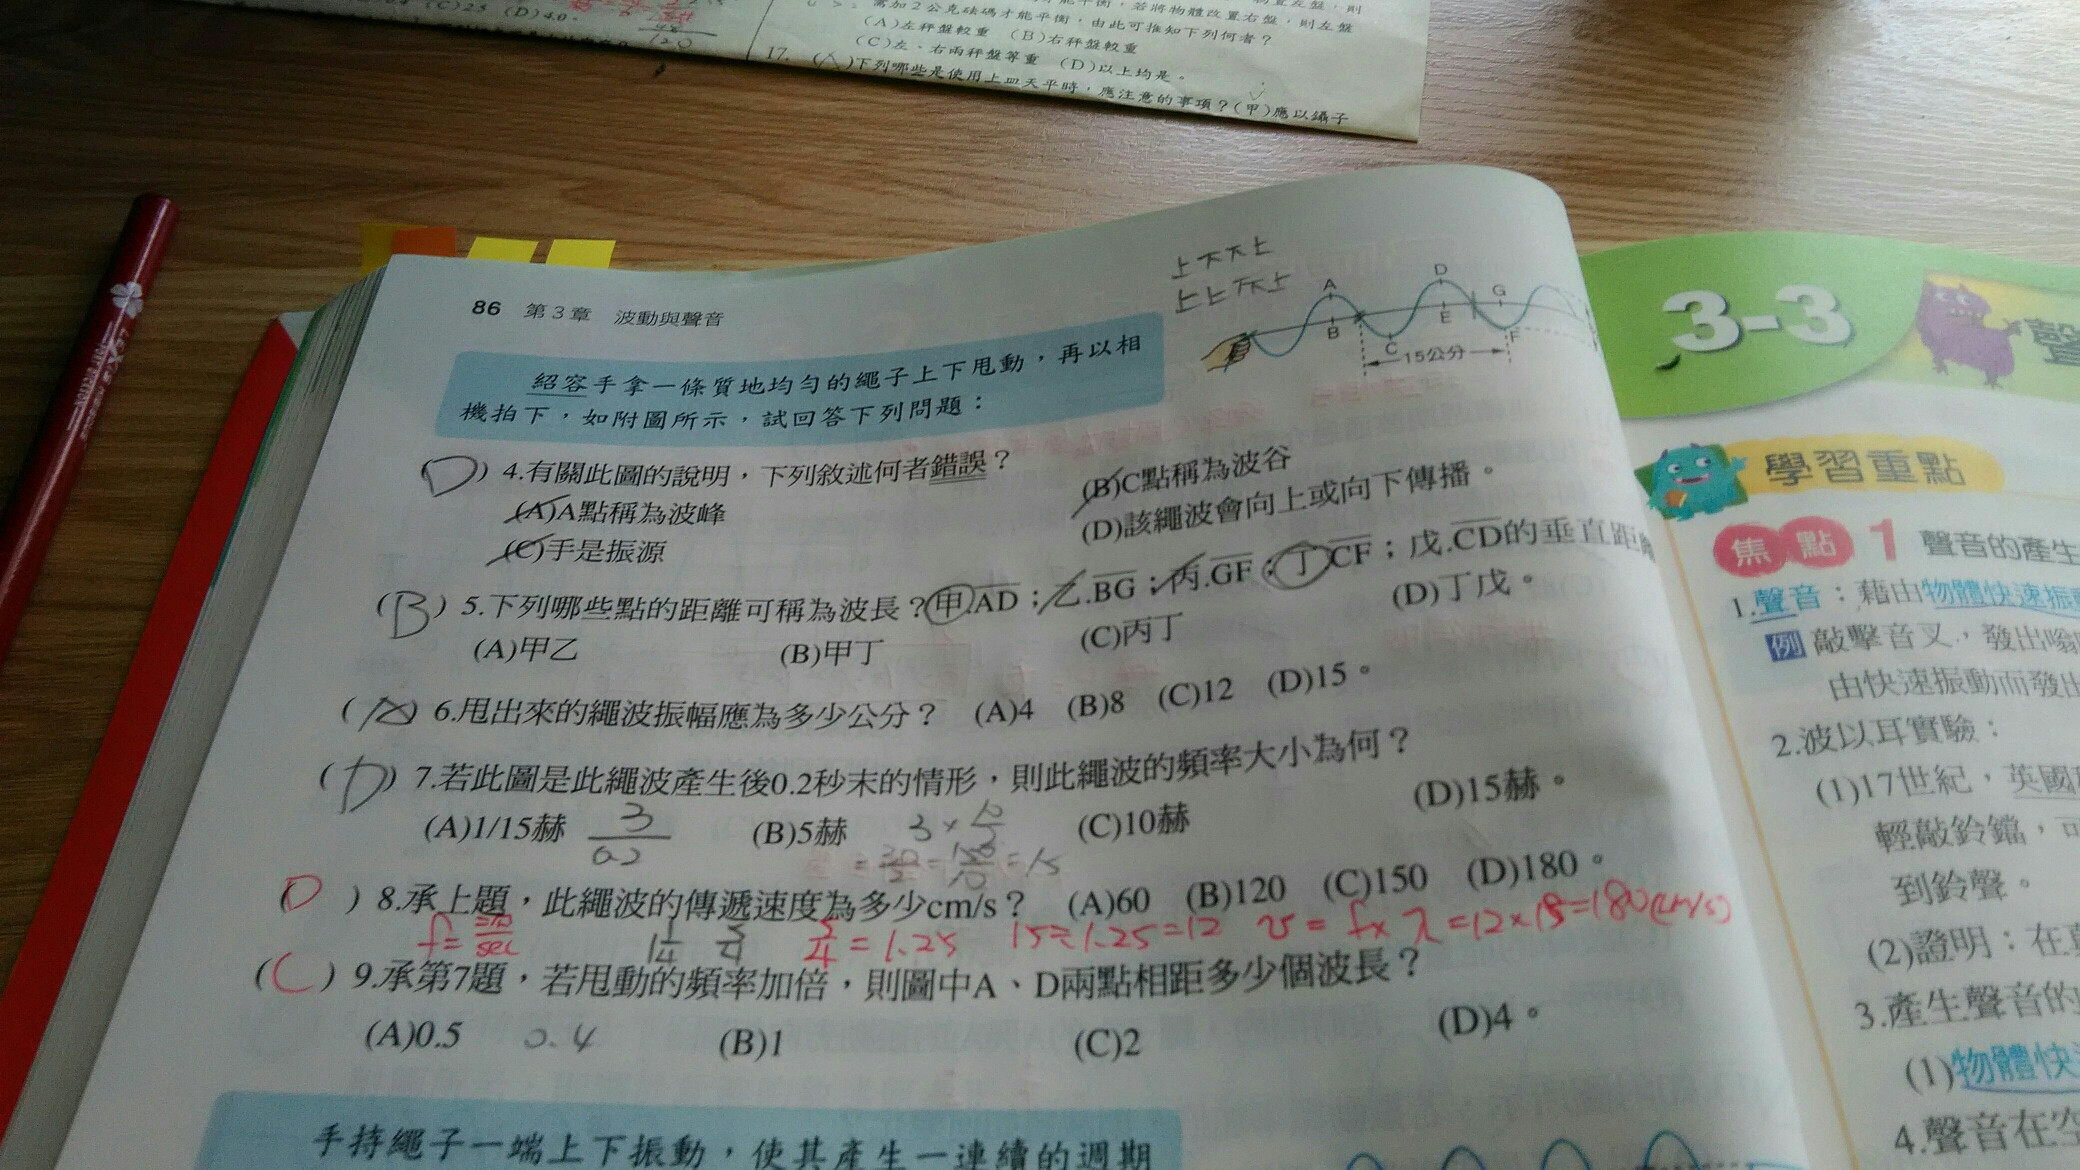 (C)2.5 (D)4.0。
120
需加2公克砝碼才能平衡,若將物體改置右盤,則左盤
平衡,由此可推知下列何者?
(A)左秤盤較重 (B)右秤盤較重
(C)左、右兩秤盤等重 (D)以上均是。
17. 下列哪些是使用上皿天平時,應注意的事項?(甲)應以鑷子
86 第3章 波動與聲音
上下下上
上上下下上
A D G
B C E F
15公分
紹容手拿一條質地均勻的繩子上下甩動,再以相
機拍下,如附圖所示,試回答下列問題:
(D) 4.有關此圖的說明,下列敘述何者錯誤?
(A)A點稱為波峰 (B)C點稱為波谷
(C)手是振源 (D)該繩波會向上或向下傳播。
(B) 5.下列哪些點的距離可稱為波長?甲.AD;乙.BG;丙.GF;丁.CF;戊.CD的垂直距
(A)甲乙 (B)甲丁 (C)丙丁 (D)丁戊。
6.甩出來的繩波振幅應為多少公分? (A)4 (B)8 (C)12 (D)15。
(D) 7.若此圖是此繩波產生後0.2秒末的情形,則此繩波的頻率大小為何?
(A)1/15赫 (B)5赫 (C)10赫 (D)15赫。
3/0.2
=15
(D) 8.承上題,此繩波的傳遞速度為多少cm/s? (A)60 (B)120 (C)150 (D)180。
f= /sec 1 1/4 5/4 5/4=1.25 15÷1.25=12 v=f×λ=12×15=180(cm/s)
(C) 9.承第7題,若甩動的頻率加倍,則圖中A、D兩點相距多少個波長?
(A)0.5 0.4 (B)1 (C)2 (D)4。
手持繩子一端上下振動,使其產生一連續的週期
3-3 聲
學習重點
焦點 1 聲音的產生
1.聲音:藉由物體快速振
例 敲擊音叉,發出嗡
由快速振動而發出
2.波以耳實驗:
(1)17世紀,英國
輕敲鈴鐺,可
到鈴聲。
(2)證明:在
3.產生聲音的
(1)物體快
4.聲音在空